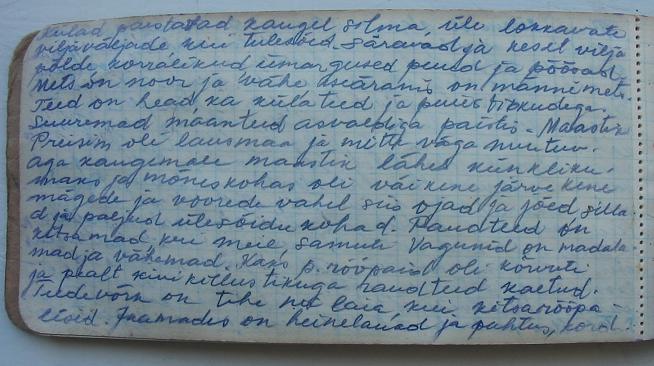 külad paistavad kaugel silma, üle lokkavate
viljaväljade kui tulesõid säravad ja kesk vilja
põlde korralikud ümargused puud ja põõsad.
Mets on noor ja vähe iseäranis on männi mets.
Teed on head ka külateed ja puiesteedega.
Suuremad maanteed asvaldiga paistis. Maastik
Preisim oli lausmaa ja mitte väga muutuv.
aga kaugemale maastik läheb künkliku-
maks ja mõneskohas oli väikene järvekene
mägede ja voorede vahel siis ojad ja jõed silla-
d ja paljud ülesõidu kohad. Raudteed on
kitsamad kui meie samuti Vagunid on madala
mad ja vähemad. Kaks p. rööpaid oli kõrvuti
ja pealt kivikillustikuga raudteed kaetud.
Teedevõrk on tihe nii laia, kui kitsarööpa-
lisid. Jaamades on heinelauad ja puhtus, kord.